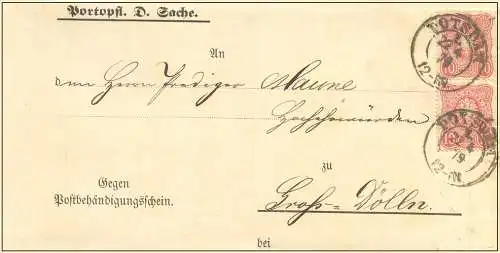 Portopfl. D. Sache.
An
den Herrn Prediger Maune
Hochehrwürden
zu
Gegen
Postbehändigungsschein.
Groß-Dölln.
bei
POTSDAM
79
12-1N.
POTSDAM
79
12-1N.